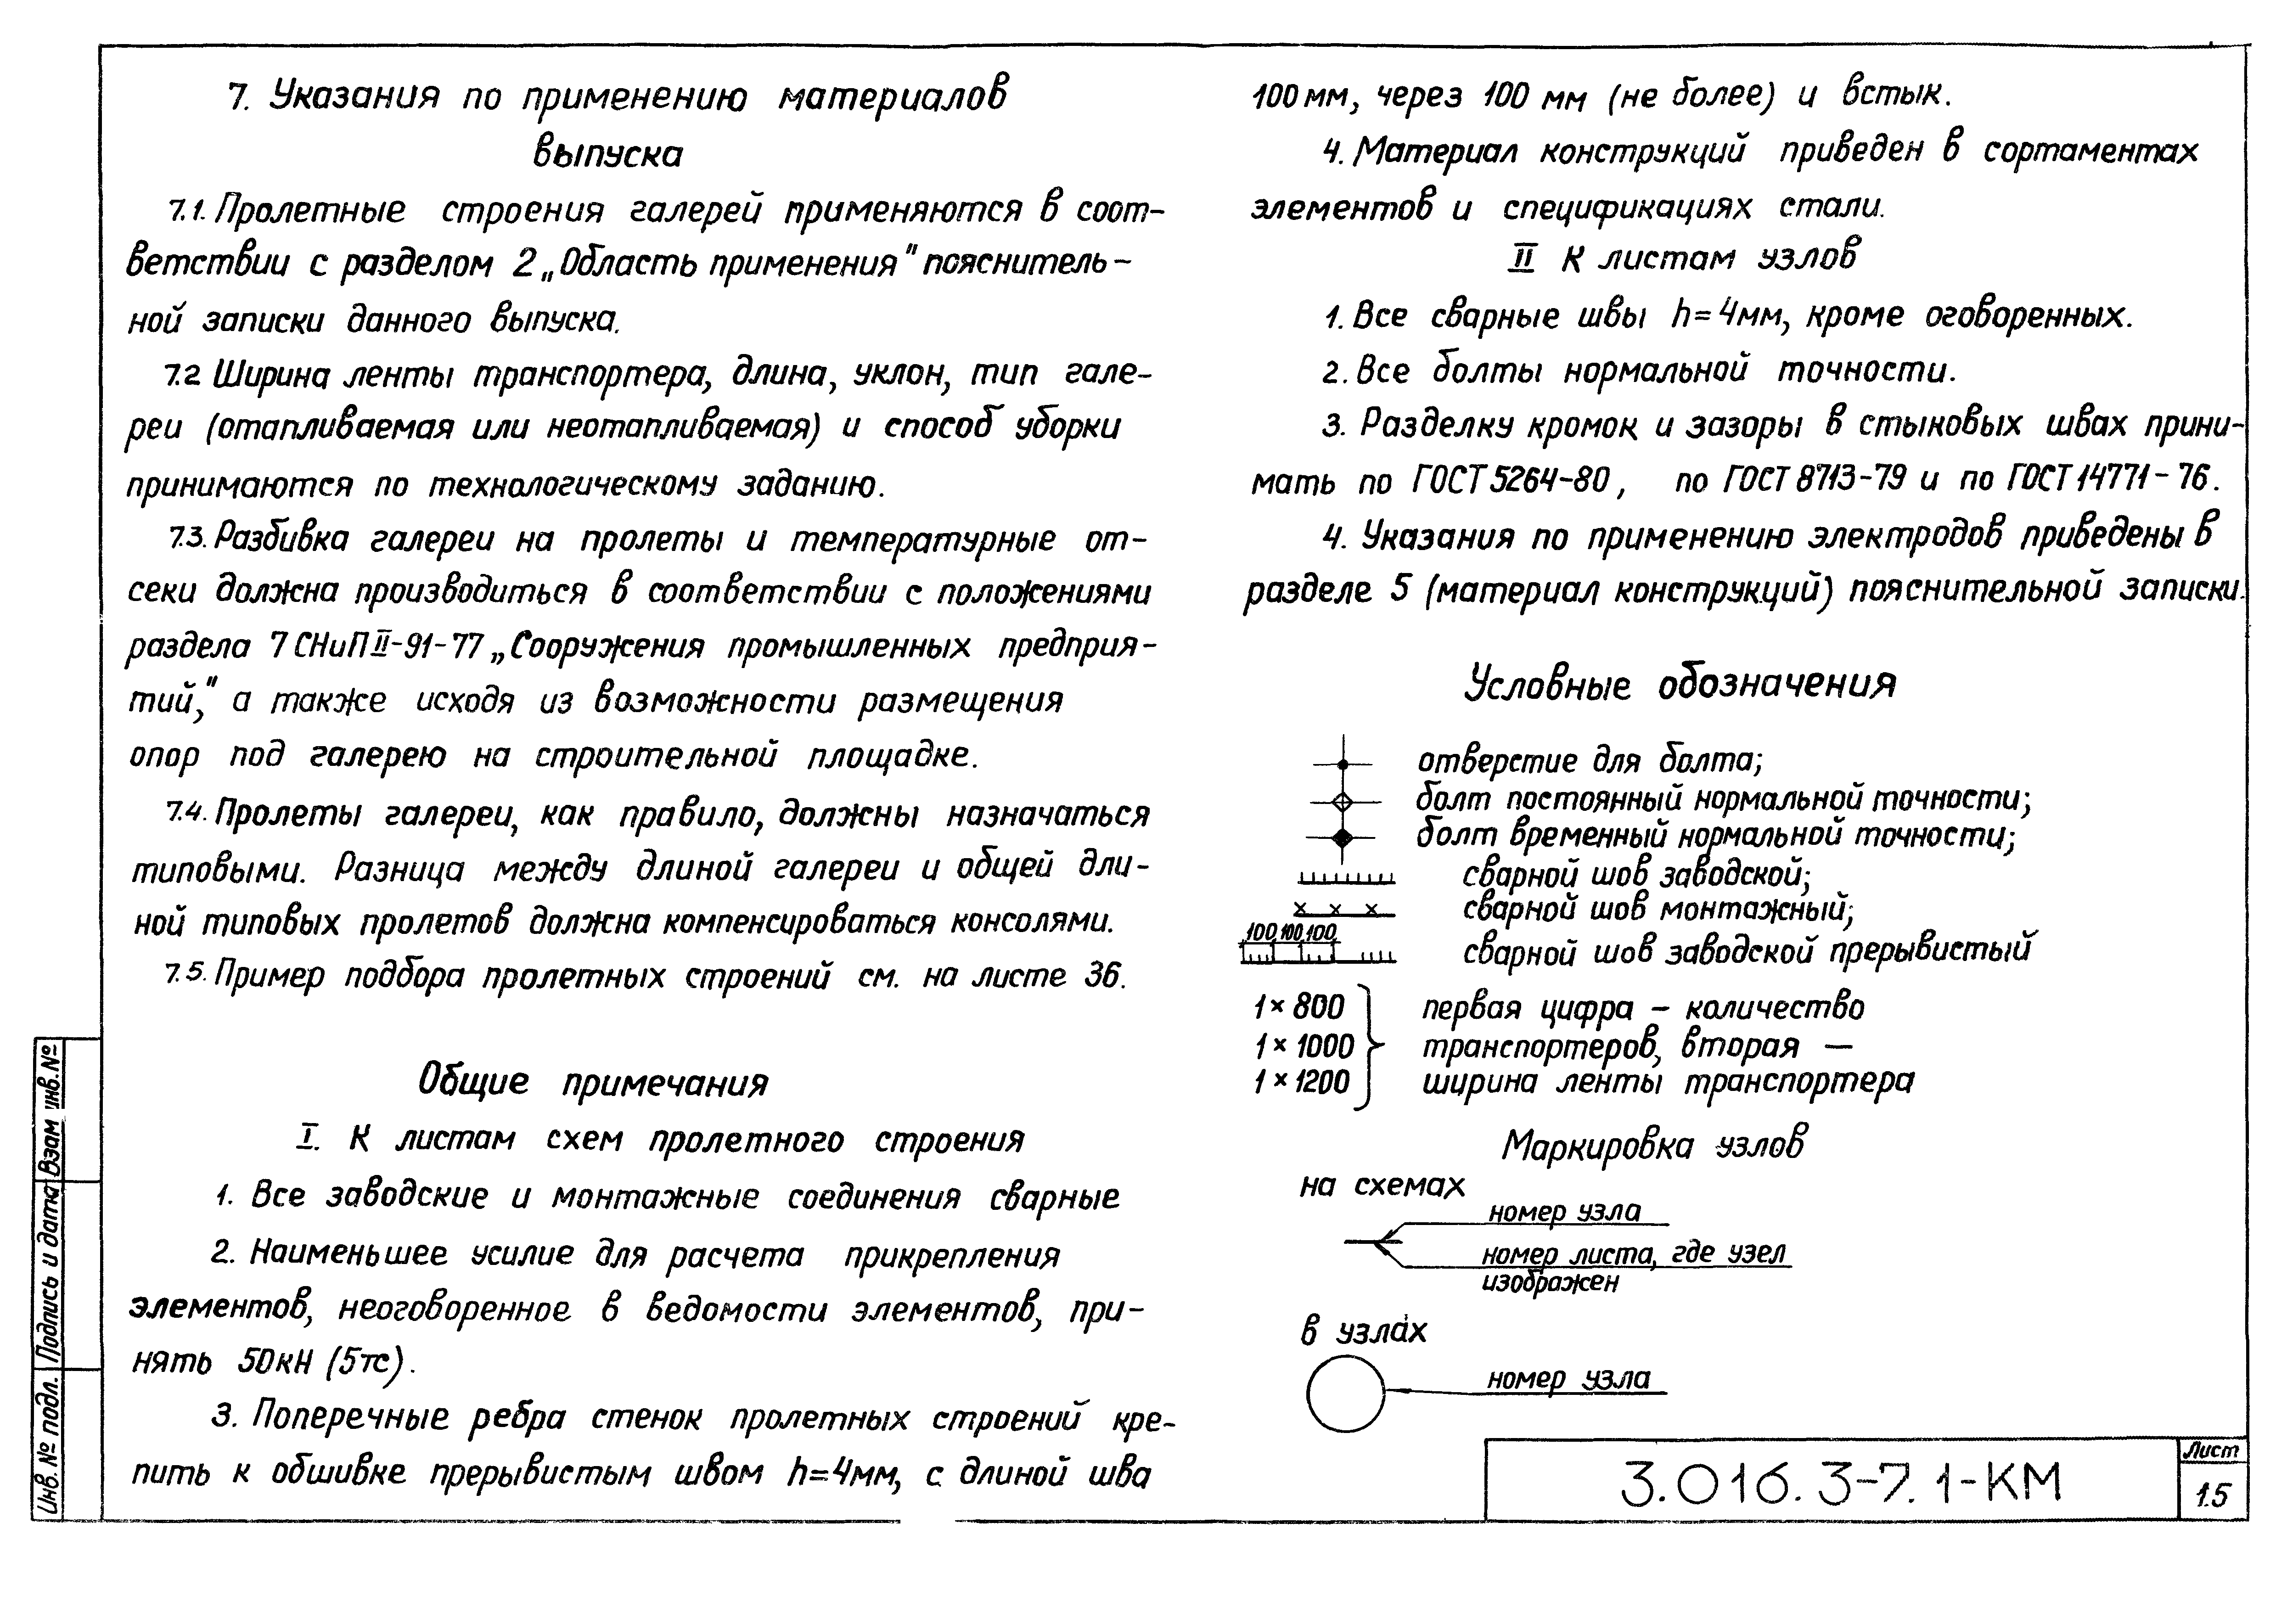 7. Указания по применению материалов
выпуска
7.1. Пролетные строения галерей применяются в соот-
ветствии с разделом 2 „Область применения" пояснитель-
ной записки данного выпуска.
7.2 Ширина ленты транспортера, длина, уклон, тип гале-
реи (отапливаемая или неотапливаемая) и способ уборки
принимаются по технологическому заданию.
7.3. Разбивка галереи на пролеты и температурные от-
секи должна производиться в соответствии с положениями
раздела 7 СНиП II-91-77 „Сооружения промышленных предприя-
тий," а также исходя из возможности размещения
опор под галерею на строительной площадке.
7.4. Пролеты галереи, как правило, должны назначаться
типовыми. Разница между длиной галереи и общей дли-
ной типовых пролетов должна компенсироваться консолями.
7.5. Пример подбора пролетных строений см. на листе 36.
Общие примечания
I. К листам схем пролетного строения
1. Все заводские и монтажные соединения сварные
2. Наименьшее усилие для расчета прикрепления
элементов, неоговоренное в ведомости элементов, при-
нять 50кН (5тс).
3. Поперечные ребра стенок пролетных строений кре-
пить к обшивке прерывистым швом h=4мм, с длиной шва
100мм, через 100 мм (не более) и встык.
4. Материал конструкций приведен в сортаментах
элементов и спецификациях стали.
II К листам узлов
1. Все сварные швы h=4мм, кроме оговоренных.
2. Все болты нормальной точности.
3. Разделку кромок и зазоры в стыковых швах прини-
мать по ГОСТ 5264-80, по ГОСТ 8713-79 и по ГОСТ 14771-76.
4. Указания по применению электродов приведены в
разделе 5 (материал конструкций) пояснительной записки.
Условные обозначения
отверстие для болта;
болт постоянный нормальной точности;
болт временный нормальной точности;
сварной шов заводской;
сварной шов монтажный;
100 100 100
сварной шов заводской прерывистый
1×800 первая цифра - количество
1×1000 транспортеров, вторая —
1×1200 ширина ленты транспортера
Маркировка узлов
на схемах
номер узла
номер листа, где узел
изображен
в узлах
номер узла
3.016.3-7.1-КМ
Лист
1.5
Инв. № подл. Подпись и дата Взам инв.№